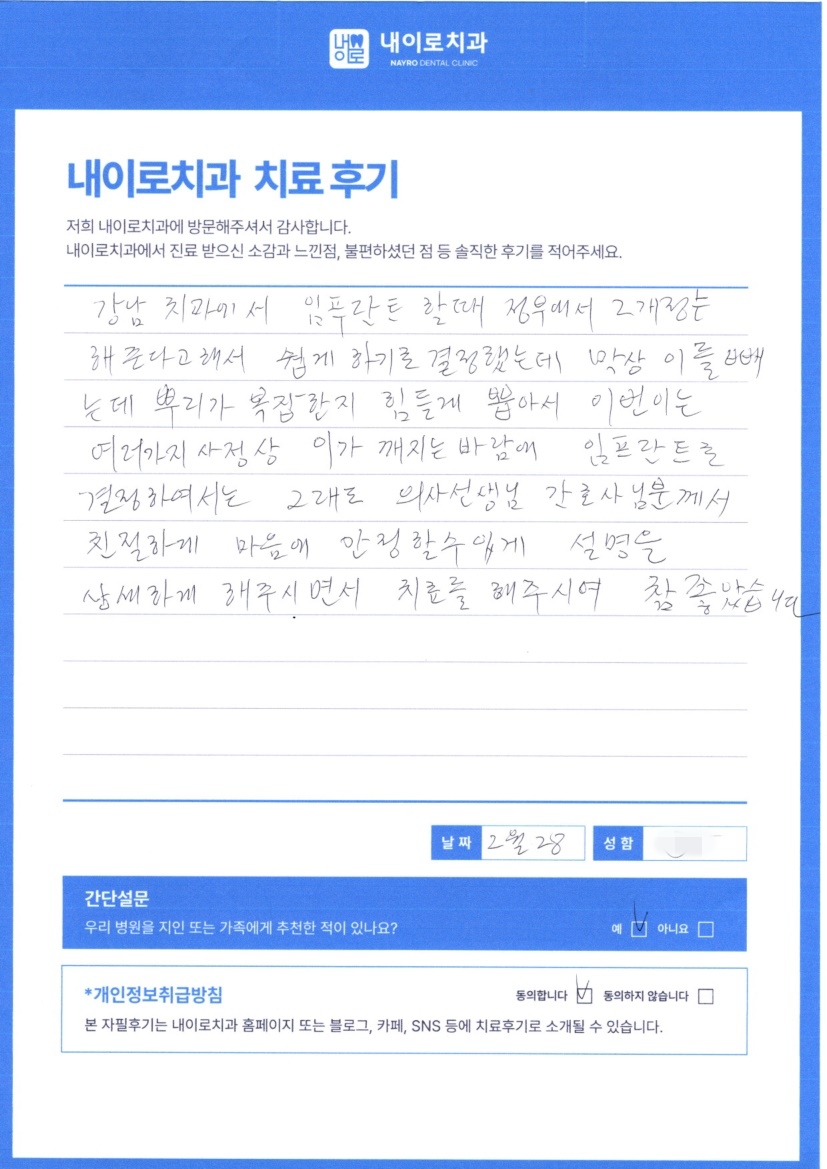 내이로
내이로치과
NAYRO DENTAL CLINIC
내이로치과 치료 후기
저희 내이로치과에 방문해주셔서 감사합니다.
내이로치과에서 진료 받으신 소감과 느낀점, 불편하셨던 점 등 솔직한 후기를 적어주세요.
강남 치과에서 임푸란트 할때 정우에서 2개정는
해준다고해서 쉽게 하기로 결정했는데 막상 이를 빼
는데 뿌리가 복잡한지 힘들게 뽑아서 이번이는
여러가지 사정상 이가 깨지는 바람에 임프란트를
결정하여서는 그래도 의사선생님 간호사님분께서
친절하게 마음에 안정할수있게 설명을
상세하게 해주시면서 치료를 해주시여 참 좋았습니다
날 짜 2월 28 성 함
간단설문
우리 병원을 지인 또는 가족에게 추천한 적이 있나요? 예 아니요
*개인정보취급방침 동의합니다 동의하지 않습니다
본 자필후기는 내이로치과 홈페이지 또는 블로그, 카페, SNS 등에 치료후기로 소개될 수 있습니다.